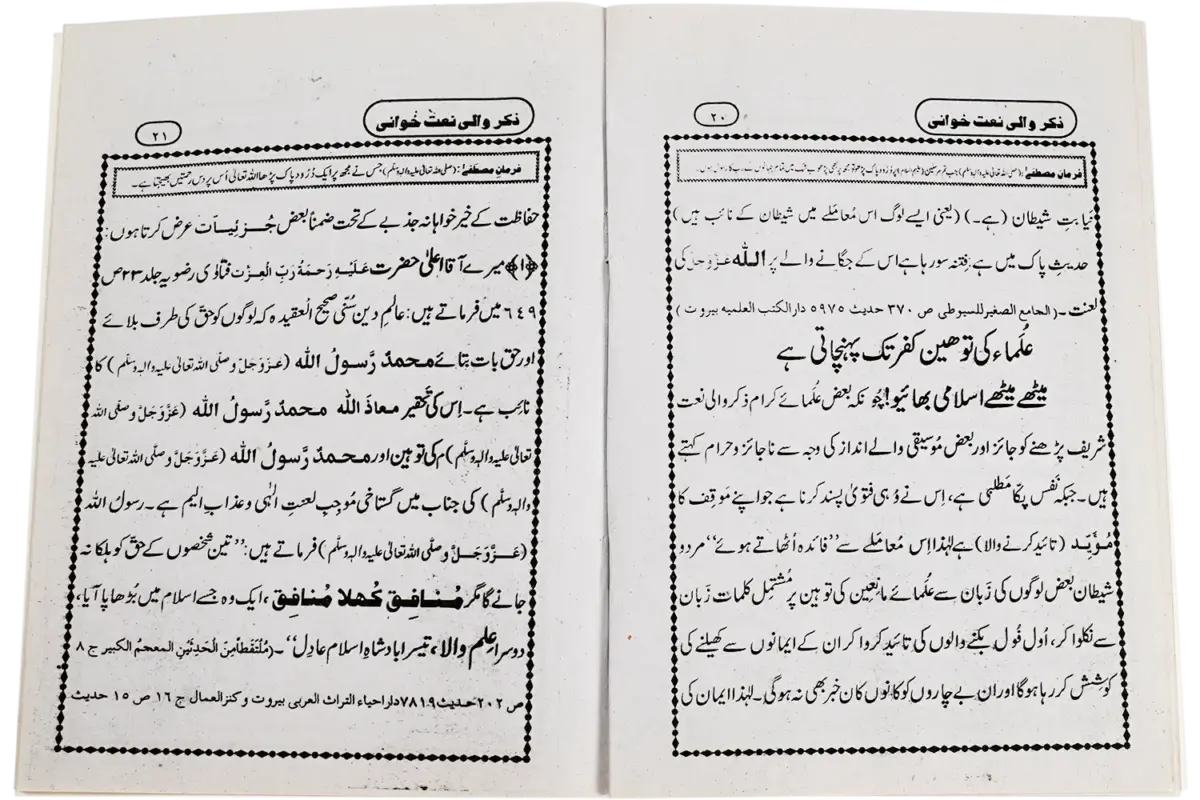 ذکر والی نعت خوانی
۲۰
فرمانِ مصطفےٰ: (صلی اللہ تعالیٰ علیہ والہ وسلم) جب تم مرسلین (علیہم السلام) پر دُرُود پاک پڑھو تو مجھ پر بھی پڑھو بے شک میں تمام جہانوں کے رب کا رسول ہوں۔
نیابتِ شیطان (ہے۔) (یعنی ایسے لوگ اس مُعاملے میں شیطان کے نائب ہیں)
حدیثِ پاک میں ہے: فتنہ سو رہا ہے اس کے جگانے والے پر اللہ عَزَّوَجَلَّ کی
لعنت۔ (الجامع الصغیر للسیوطی ص ۳۷۰ حدیث ۵۹۷۵ دارالکتب العلمیہ بیروت)
عُلَماء کی توھین کفر تک پہنچاتی ہے
میٹھے میٹھے اسلامی بھائیو! چُونکہ بعض عُلمائے کرام ذکر والی نعت
شریف پڑھنے کو جائز اور بعض مُوسیقی والے انداز کی وجہ سے ناجائز و حرام کہتے
ہیں۔ جبکہ نَفْس پکّا مَطلبی ہے، اِس نے وُہی فتویٰ پسند کرنا ہے جو اپنے مَوقِف کا
مُؤَیِّد (تائید کرنے والا) ہے لہٰذا اِس مُعاملے سے ’’فائدہ اُٹھاتے ہوئے‘‘ مردود
شیطان بعض لوگوں کی زَبان سے عُلمائے مانِعین کی توہین پر مُشتمل کلمات زَبان
سے نکلوا کر، اُول فُول بکنے والوں کی تائید کروا کر ان کے ایمانوں سے کھیلنے کی
کوشش کر رہا ہوگا اور ان بے چاروں کو کانوں کان خبر بھی نہ ہوگی۔ لہٰذا ایمان کی
ذکر والی نعت خوانی
۲۱
فرمانِ مصطفےٰ: (صلی اللہ تعالیٰ علیہ والہ وسلم) جس نے مجھ پر ایک دُرُود پاک پڑھا اللہ تعالیٰ اُس پر دس رحمتیں بھیجتا ہے۔
حفاظت کے خیرخواہانہ جذبے کے تحت ضمناً بعض جُزئِیات عرض کرتا ہوں:
﴿۱﴾ میرے آقا اعلیٰ حضرت عَلَیْہِ رَحمَۃُ رَبِّ الْعِزَّت فتاوٰی رضویہ جلد ۲۳ ص
۶۴۹ میں فرماتے ہیں: عالمِ دین سُنّی صحیحُ الْعقیدہ کہ لوگوں کو حق کی طرف بلائے
اور حق بات بتائے محمدٌ رَّسولُ اللہ (عَزَّوَجَلَّ وصلَّی اللہ تعالیٰ علیہ والہٖ وسلَّم) کا
نائب ہے۔ اِس کی تَحقیر معاذَ اللہ محمدٌ رَّسولُ اللہ (عَزَّوَجَلَّ وصلَّی اللہ
تعالیٰ علیہ والہٖ وسلَّم) کی توہین اور محمدٌ رَّسولُ اللہ (عَزَّوَجَلَّ وصلَّی اللہ تعالیٰ علیہ
والہٖ وسلَّم) کی جناب میں گستاخی مُوجِبِ لعنتِ الٰہی و عذابِ الیم ہے۔ رسولُ اللہ
(عَزَّوَجَلَّ وصلَّی اللہ تعالیٰ علیہ والہٖ وسلَّم) فرماتے ہیں: ’’تین شخصوں کے حق کو ہلکا نہ
جانے گا مگر مُنافِق کُھلا مُنافِق، ایک وہ جسے اسلام میں بُڑھاپا آیا،
دوسرا عِلم والا، تیسرا بادشاہِ اسلام عادِل‘‘۔ (مُلتَقَطاً مِنَ الْحَدِیْثَیْنِ المعجمُ الکبیر ج ۸
ص ۲۰۲ حدیث ۷۸۱۹ دار احیاء التراث العربی بیروت و کنز العمال ج ۱۶ ص ۱۵ حدیث